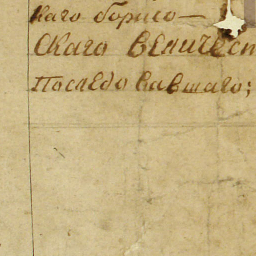 каго борисо—
Скаго величест
последовавшаго;